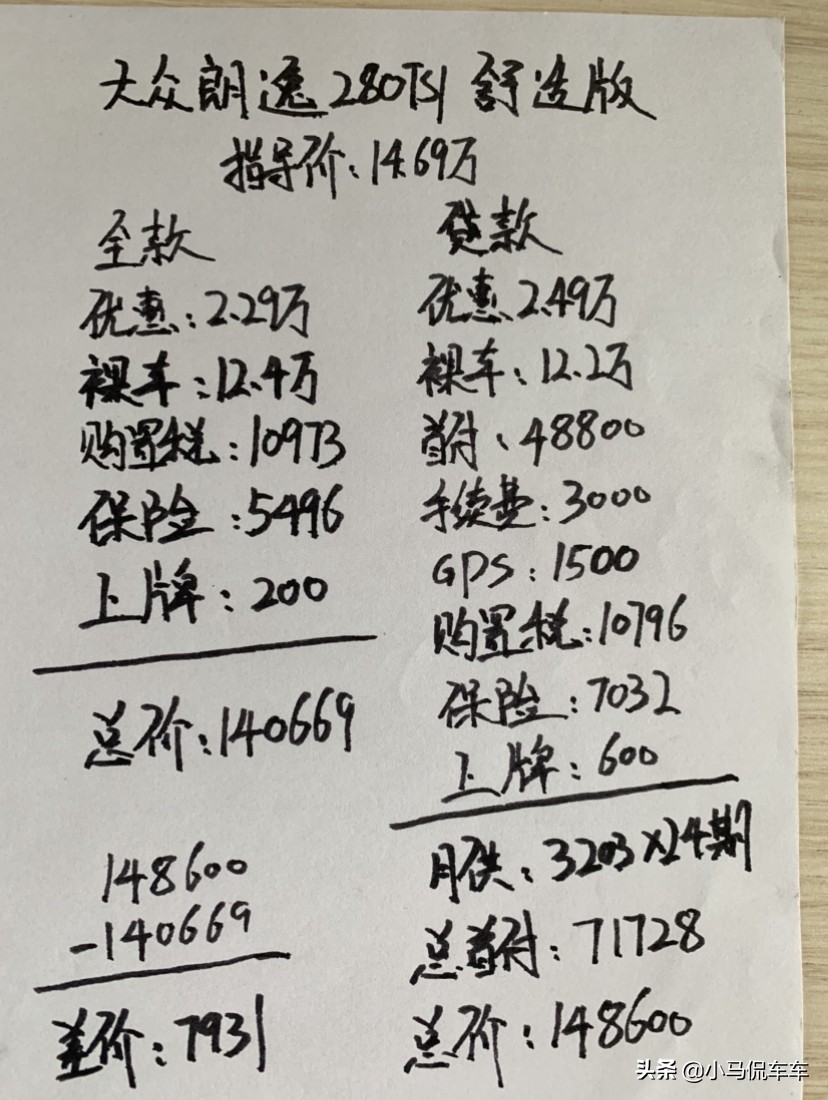 大众朗逸280TSI舒适版
指导价:14.69万
全款
优惠:2.29万
裸车:12.4万
购置税:10973
保险:5496
上牌:200
总价:140669
148600
-140669
差价:7931
贷款
优惠、2.49万
裸车:12.2万
首付、48800
手续费:3000
GPS:1500
购置税:10796
保险:7032
上牌:600
月供:3203×24期
总首付:71728
总价:148600
头条@小马侃车车